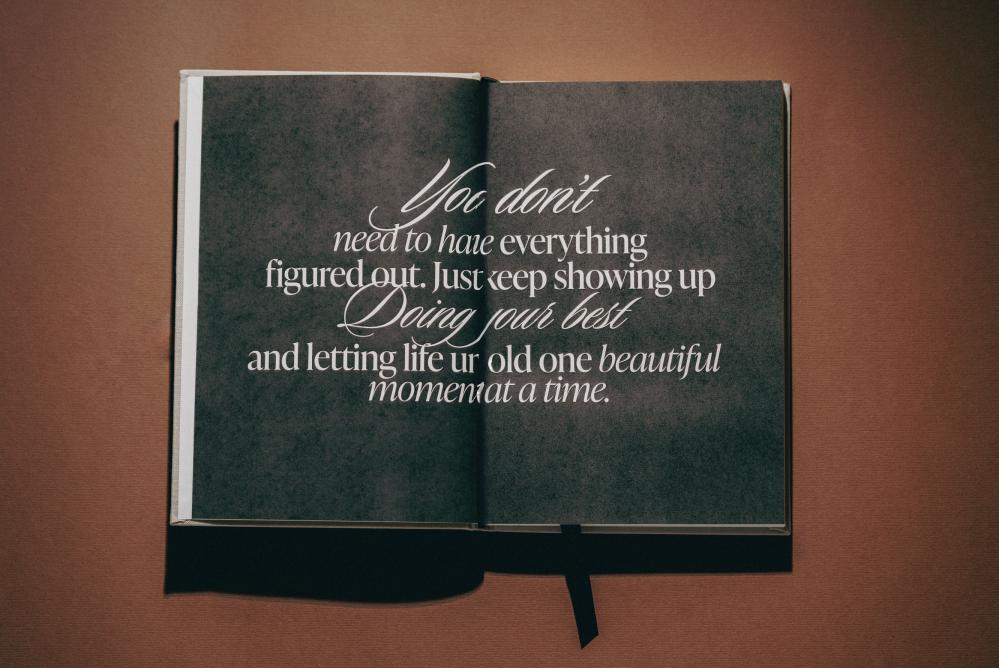 You don't
need to have everything
figured out. Just keep showing up
Doing your best
and letting life unfold one beautiful
moment at a time.